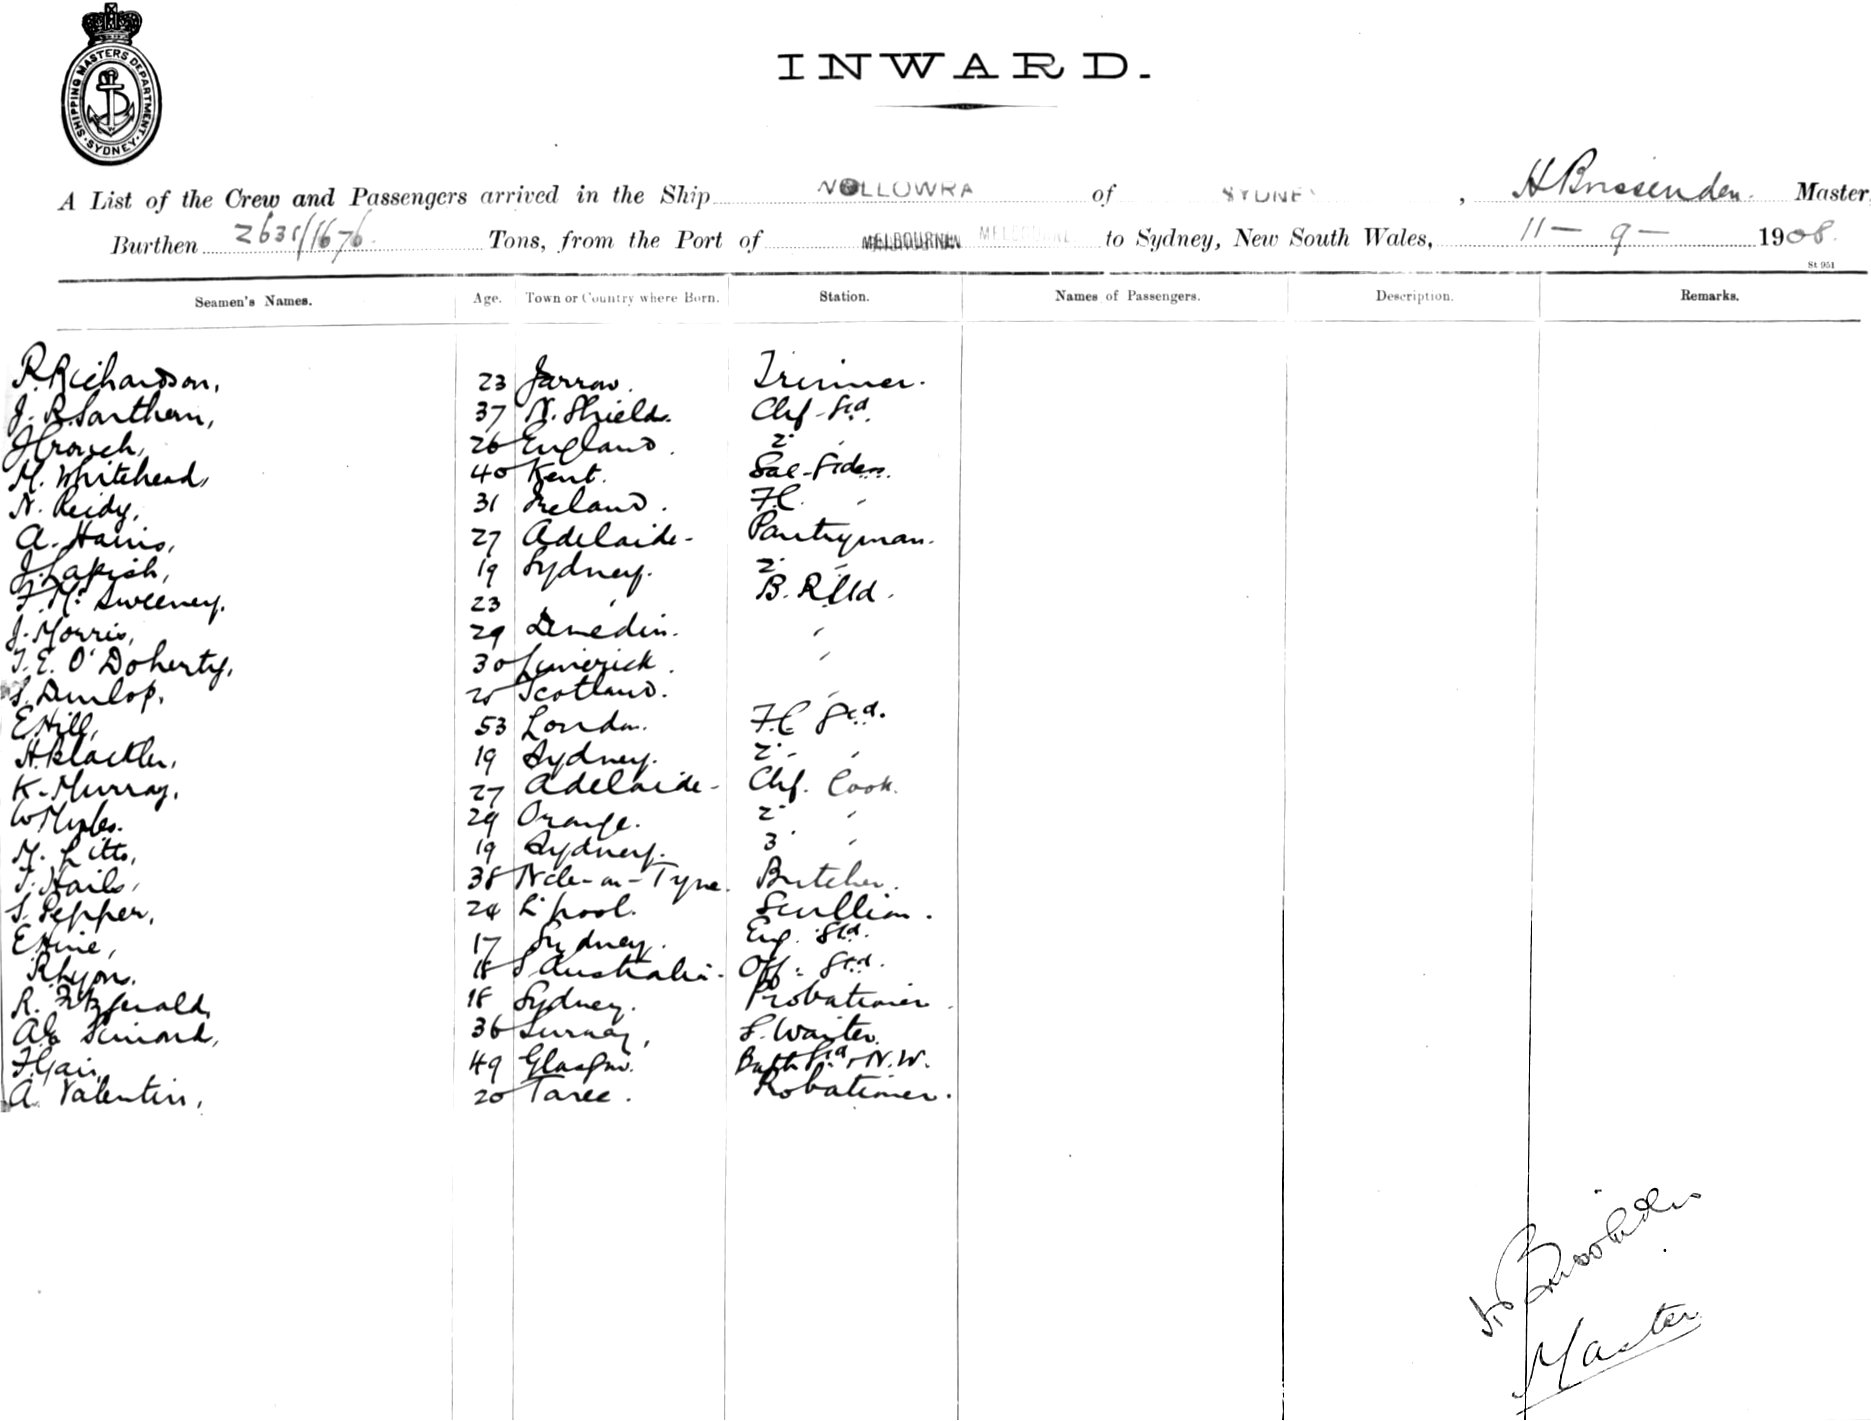 SHIPPING MASTERS DEPARTMENT · SYDNEY ·
INWARD.
A List of the Crew and Passengers arrived in the Ship WOLLOWRA of SYDNEY, H Brissenden. Master
Burthen 2631/1676 Tons, from the Port of MELBOURNE MELBOURNE to Sydney, New South Wales, 11 - 9 - 1908.
St 951
Seamen's Names. Age. Town or Country where Born. Station. Names of Passengers. Description. Remarks.
R. Richardson, 23 Jarrow. Trimmer.
J. R. Sarthern, 37 N. Shields. Chf - Std.
J Crouch, 26 England. 2 "
M. Whitehead, 40 Kent. Sal - Stdess.
N. Reidy, 31 Ireland. F.C. "
A. Harris, 27 Adelaide - Pantryman.
J. Lapish, 19 Sydney. 2 "
F. Mc Sweeney. 23 " B. R. Std.
J. Morris, 29 Dunedin. "
T. E. O'Doherty, 30 Limerick. "
S. Dunlop. 25 Scotland. "
E Hill, 53 London. F.C Std.
H. 19 Sydney. 2 - "
K. Murray, 27 Adelaide - Chf. Cook.
W Myles. 29 Orange. 2 "
M. Litts, 19 Sydney. 3 "
T. Hails, 38 Ncle-on-Tyne. Butcher.
S. Pepper, 24 L'pool. Scullion.
E Hine, 17 Sydney. Eng. Std.
R Lyons. 18 S Australia. Off. Std.
R. Fitzgerald, 18 Sydney. Probationer
A. 36 Surrey, S. Waiter.
F. Gair, 49 Glasgow. Bath Std & N.W.
A. Valentin, 20 Taree. Probationer.
H Brissenden
Master